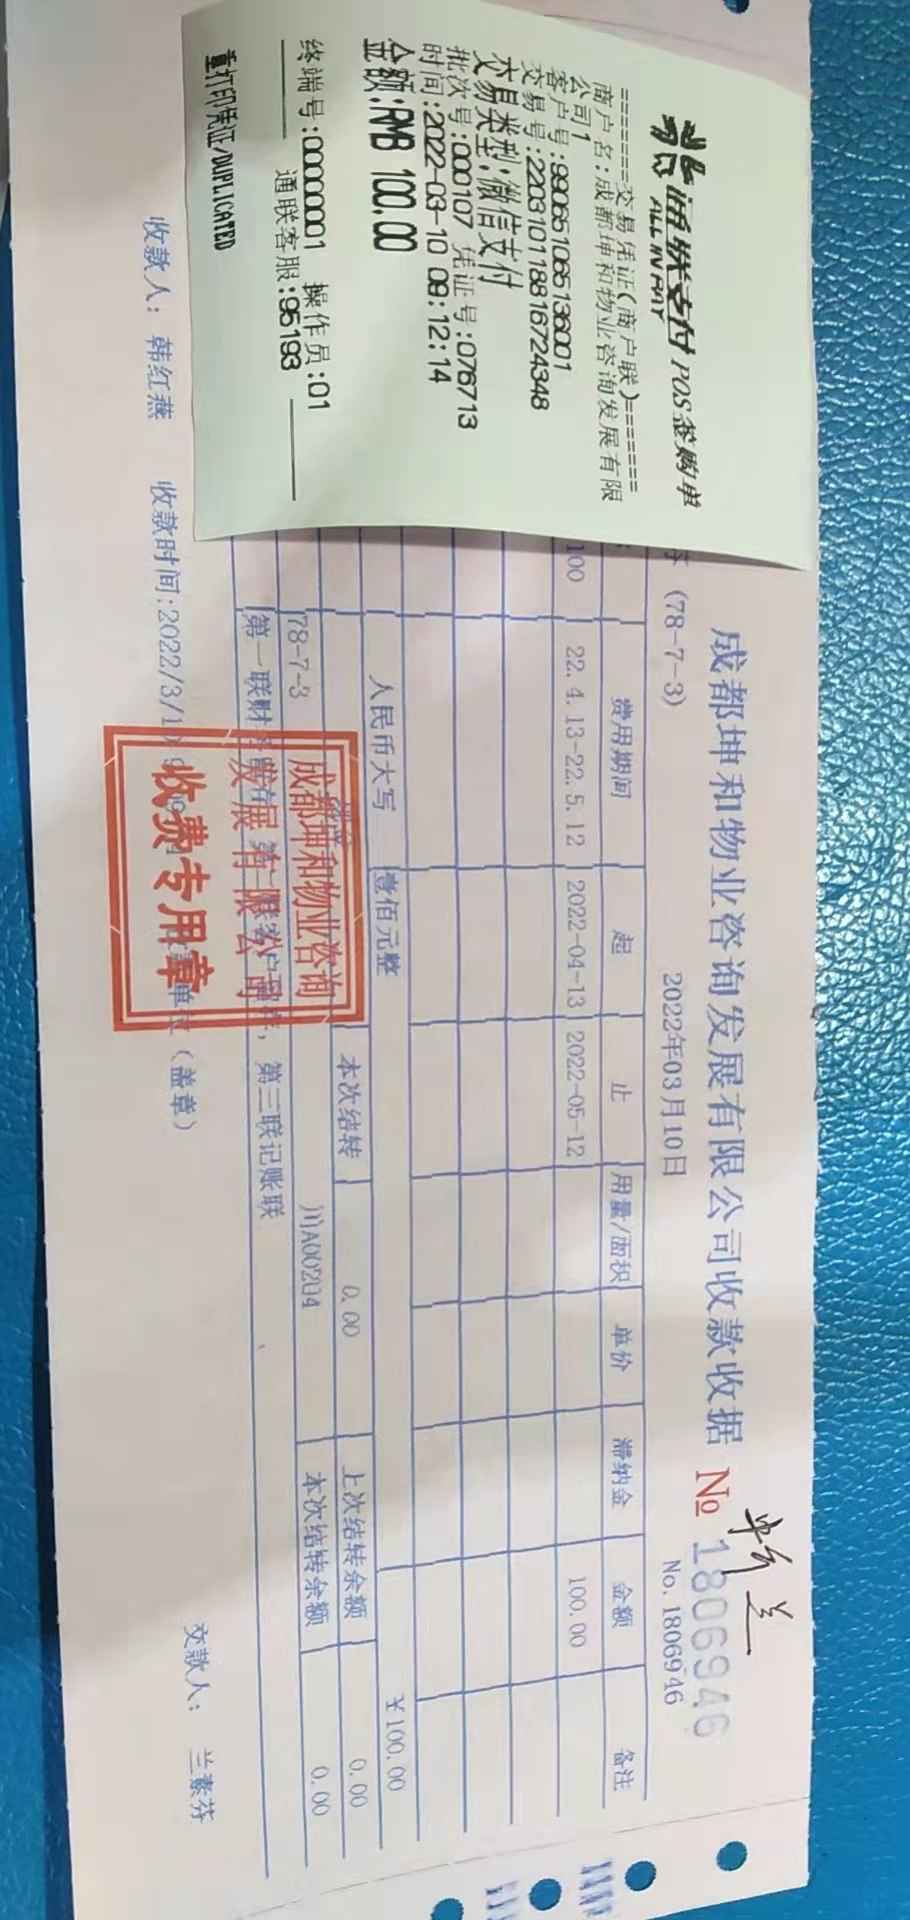 通联支付 POS签购单
ALLINPAY
======交易凭证(商户联)======
商户名:成都坤和物业咨询发展有限
公司1
客户号:990651065136001
交易号:220310118816724348
交易类型:微信支付
批次号:000107 凭证号:076713
时间:2022-03-10 09:12:14
金额:RMB 100.00
终端号:00000001 操作员:01
通联客服:95193
重打印凭证/DUPLICATED
成都坤和物业咨询发展有限公司收款收据 № 1806946
(78-7-3) 2022年03月10日 No. 1806946
费用期间 起 止 用量/面积 单价 滞纳金 金额 备注
100 22.4.13-22.5.12 2022-04-13 2022-05-12 100.00
人民币大写 壹佰元整 ¥100.00
本次结转 0.00 上次结转余额 0.00
78-7-3 川A002D4 本次结转余额 0.00
第一联财 第三联记账联
收款人: 韩红燕 收款时间:2022/3/1 (盖章) 交款人: 兰素芬
成都坤和物业咨询
发展有限公司
收费专用章